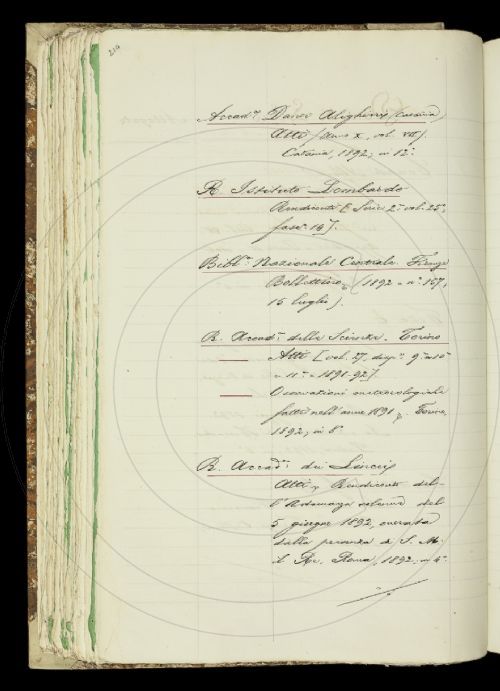 214
Accad.ª Dante Alighieri (Catania)
Atti (Anno X, vol. VII).
Catania, 1892, in 12°.
R. Istituto Lombardo
Rendiconti [Serie 2ª vol. 25°,
fasc. 14].
Bibl.ª Nazionale Centrale. Firenze
Bollettino, (1892 - n.° 157,
15 luglio).
R. Accad.ª delle Scienze. Torino
Atti [vol. 27, disp.ª 9ª a 10ª
11ª - 1891-92]
Osservazioni meteorologiche
fatte nell'anno 1891. Torino,
1892, in 8°
R. Accad.ª dei Lincei
Atti, Rendiconti del-
l'Adunanza solenne del
5 giugno 1892, onorata
dalla presenza di S. M.
il Re. Roma, 1892, in 4°.